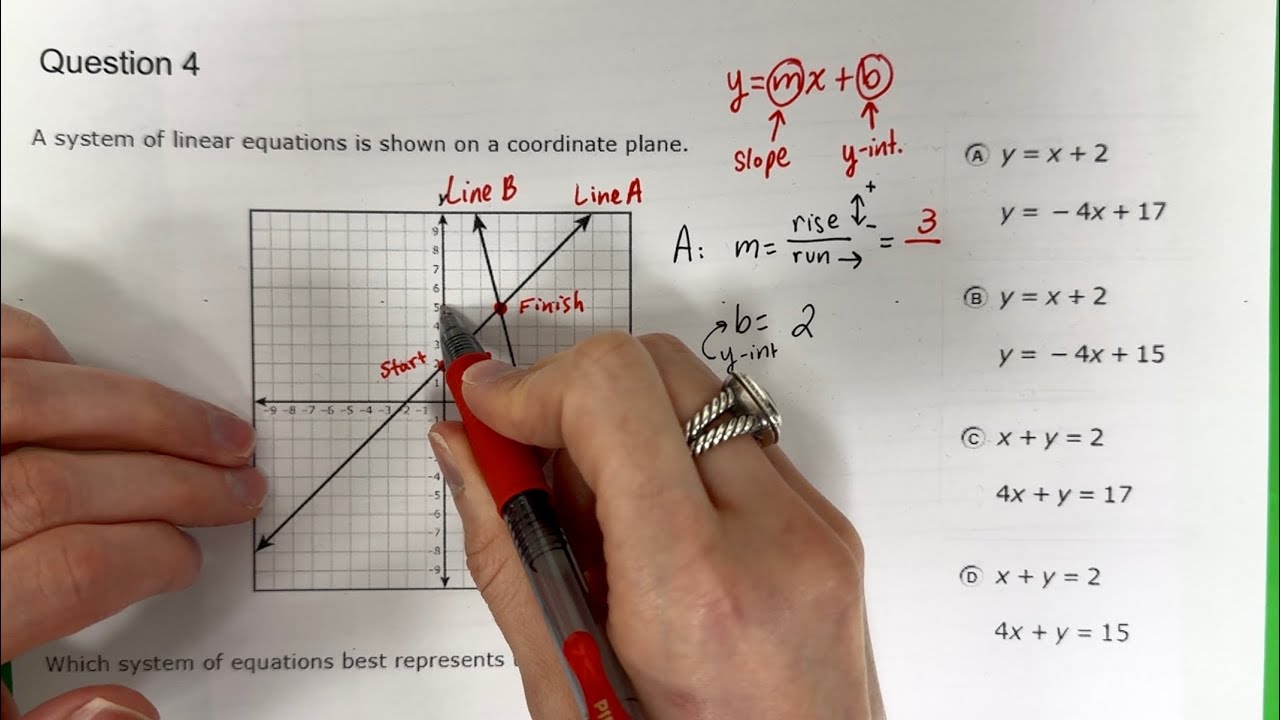 Question 4
A system of linear equations is shown on a coordinate plane.
y = mx + b
slope
y-int.
Line B
Line A
y
A: m = rise/run → = 3
+
-
b = 2
y-int
Start
Finish
9
8
7
6
5
4
3
2
1
-9 -8 -7 -6 -5 -4 -3 -2 -1
-4
-5
-6
-7
-8
-9
Which system of equations best represents
A y = x + 2
y = − 4x + 17
B y = x + 2
y = − 4x + 15
C x + y = 2
4x + y = 17
D x + y = 2
4x + y = 15